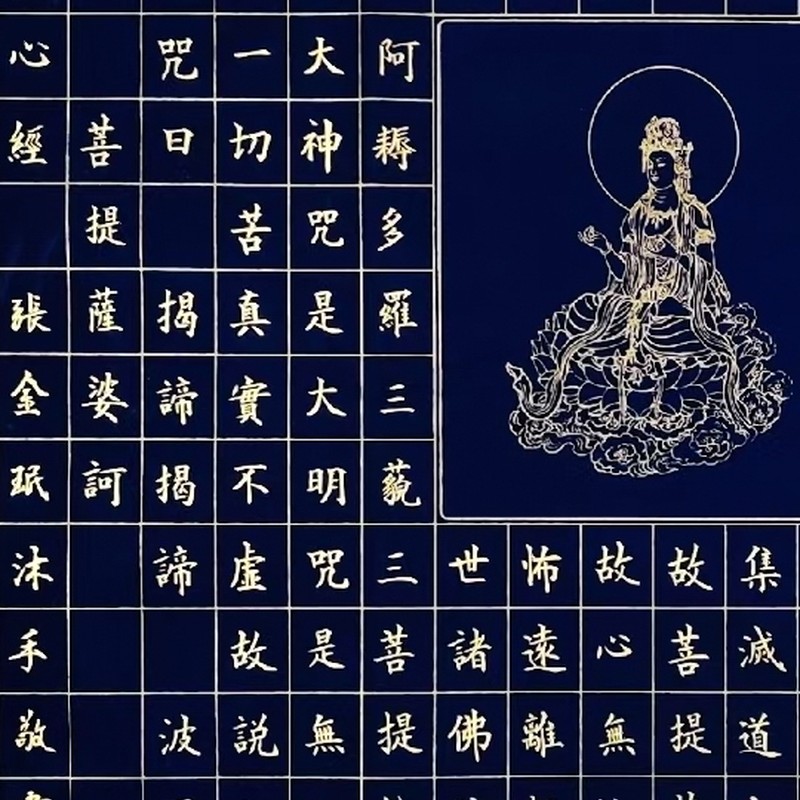 集滅道
故菩提
故心無
怖遠離
世諸佛
阿耨多羅三藐三菩提
大神咒是大明咒是無
一切苦真實不虛故説
咒曰 揭諦揭諦 波
菩提薩婆訶
心經 張金珉沐手敬